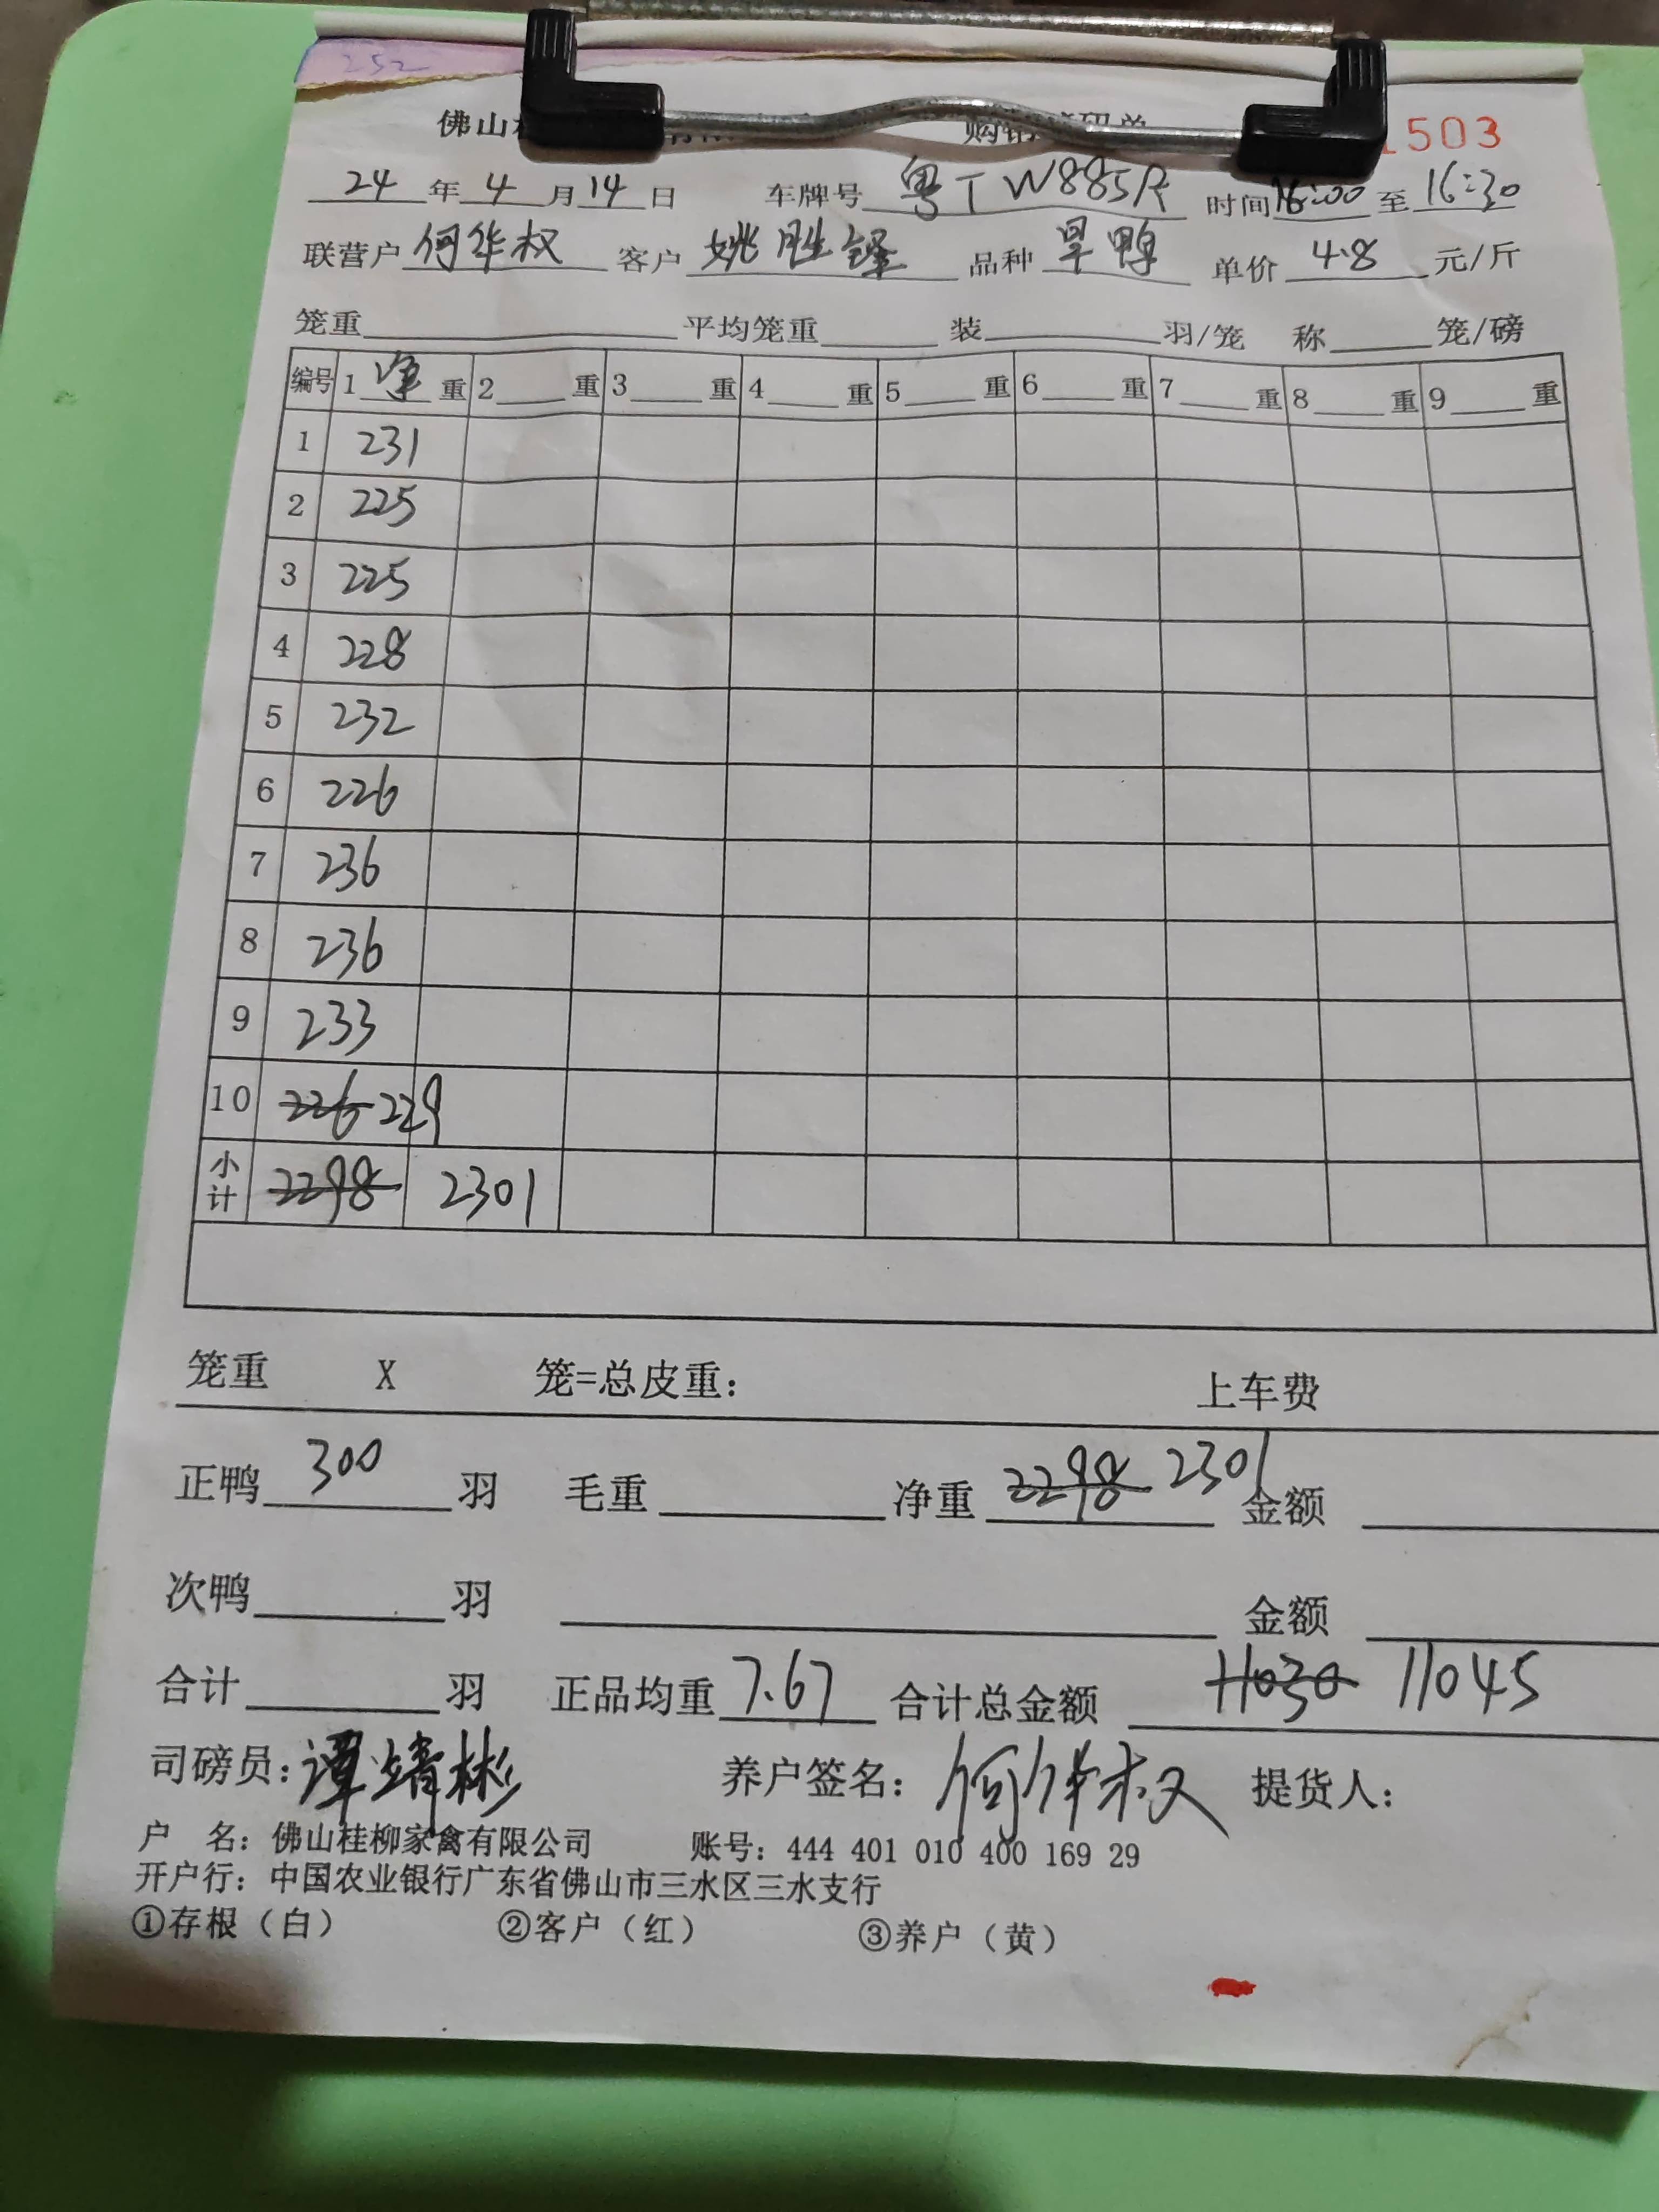 252
佛山
503
24年4月14日 车牌号粤TW885 时间16:00至16:30
联营户何华权 客户姚胜锋 品种旱鸭 单价4.8元/斤
笼重 平均笼重 装 羽/笼 称 笼/磅
编号 1净重 2重 3重 4重 5重 6重 7重 8重 9重
1 231
2 225
3 225
4 228
5 232
6 226
7 236
8 236
9 233
10 226 229
小计 2298 2301
笼重 X 笼=总皮重: 上车费
正鸭300羽 毛重 净重2298 2301 金额
次鸭 羽 金额
合计 羽 正品均重7.67 合计总金额 11030 11045
司磅员:谭靖彬 养户签名:何华权 提货人:
户 名:佛山桂柳家禽有限公司 账号:444 401 010 400 169 29
开户行:中国农业银行广东省佛山市三水区三水支行
①存根(白) ②客户(红) ③养户(黄)